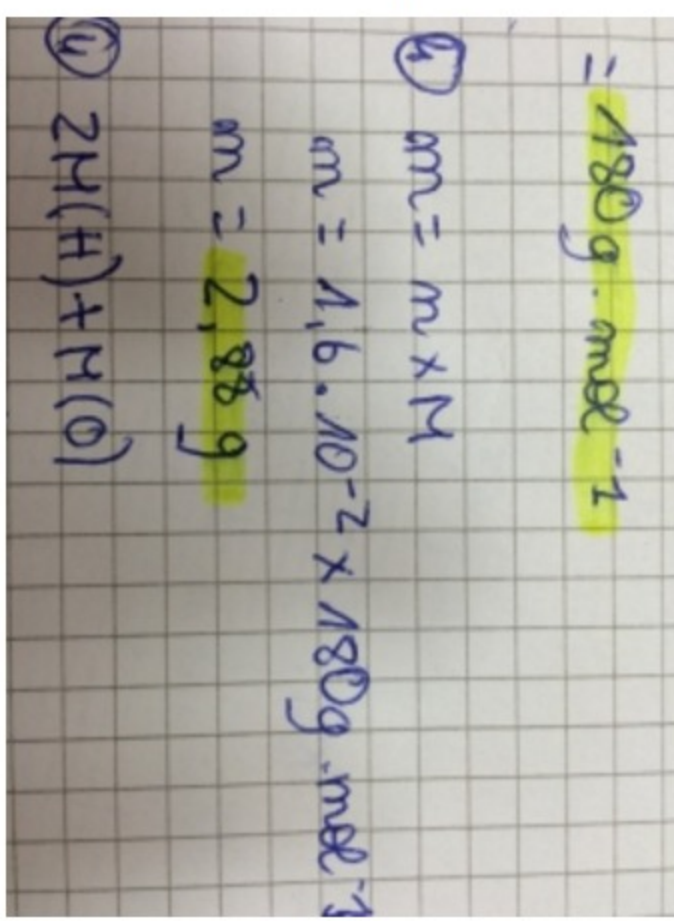 = 180 g. mol⁻¹
④ m = n × M
m = 1,6 . 10⁻² × 180 g. mol⁻¹
m = 2,88 g
④ 2M(H)+M(O)